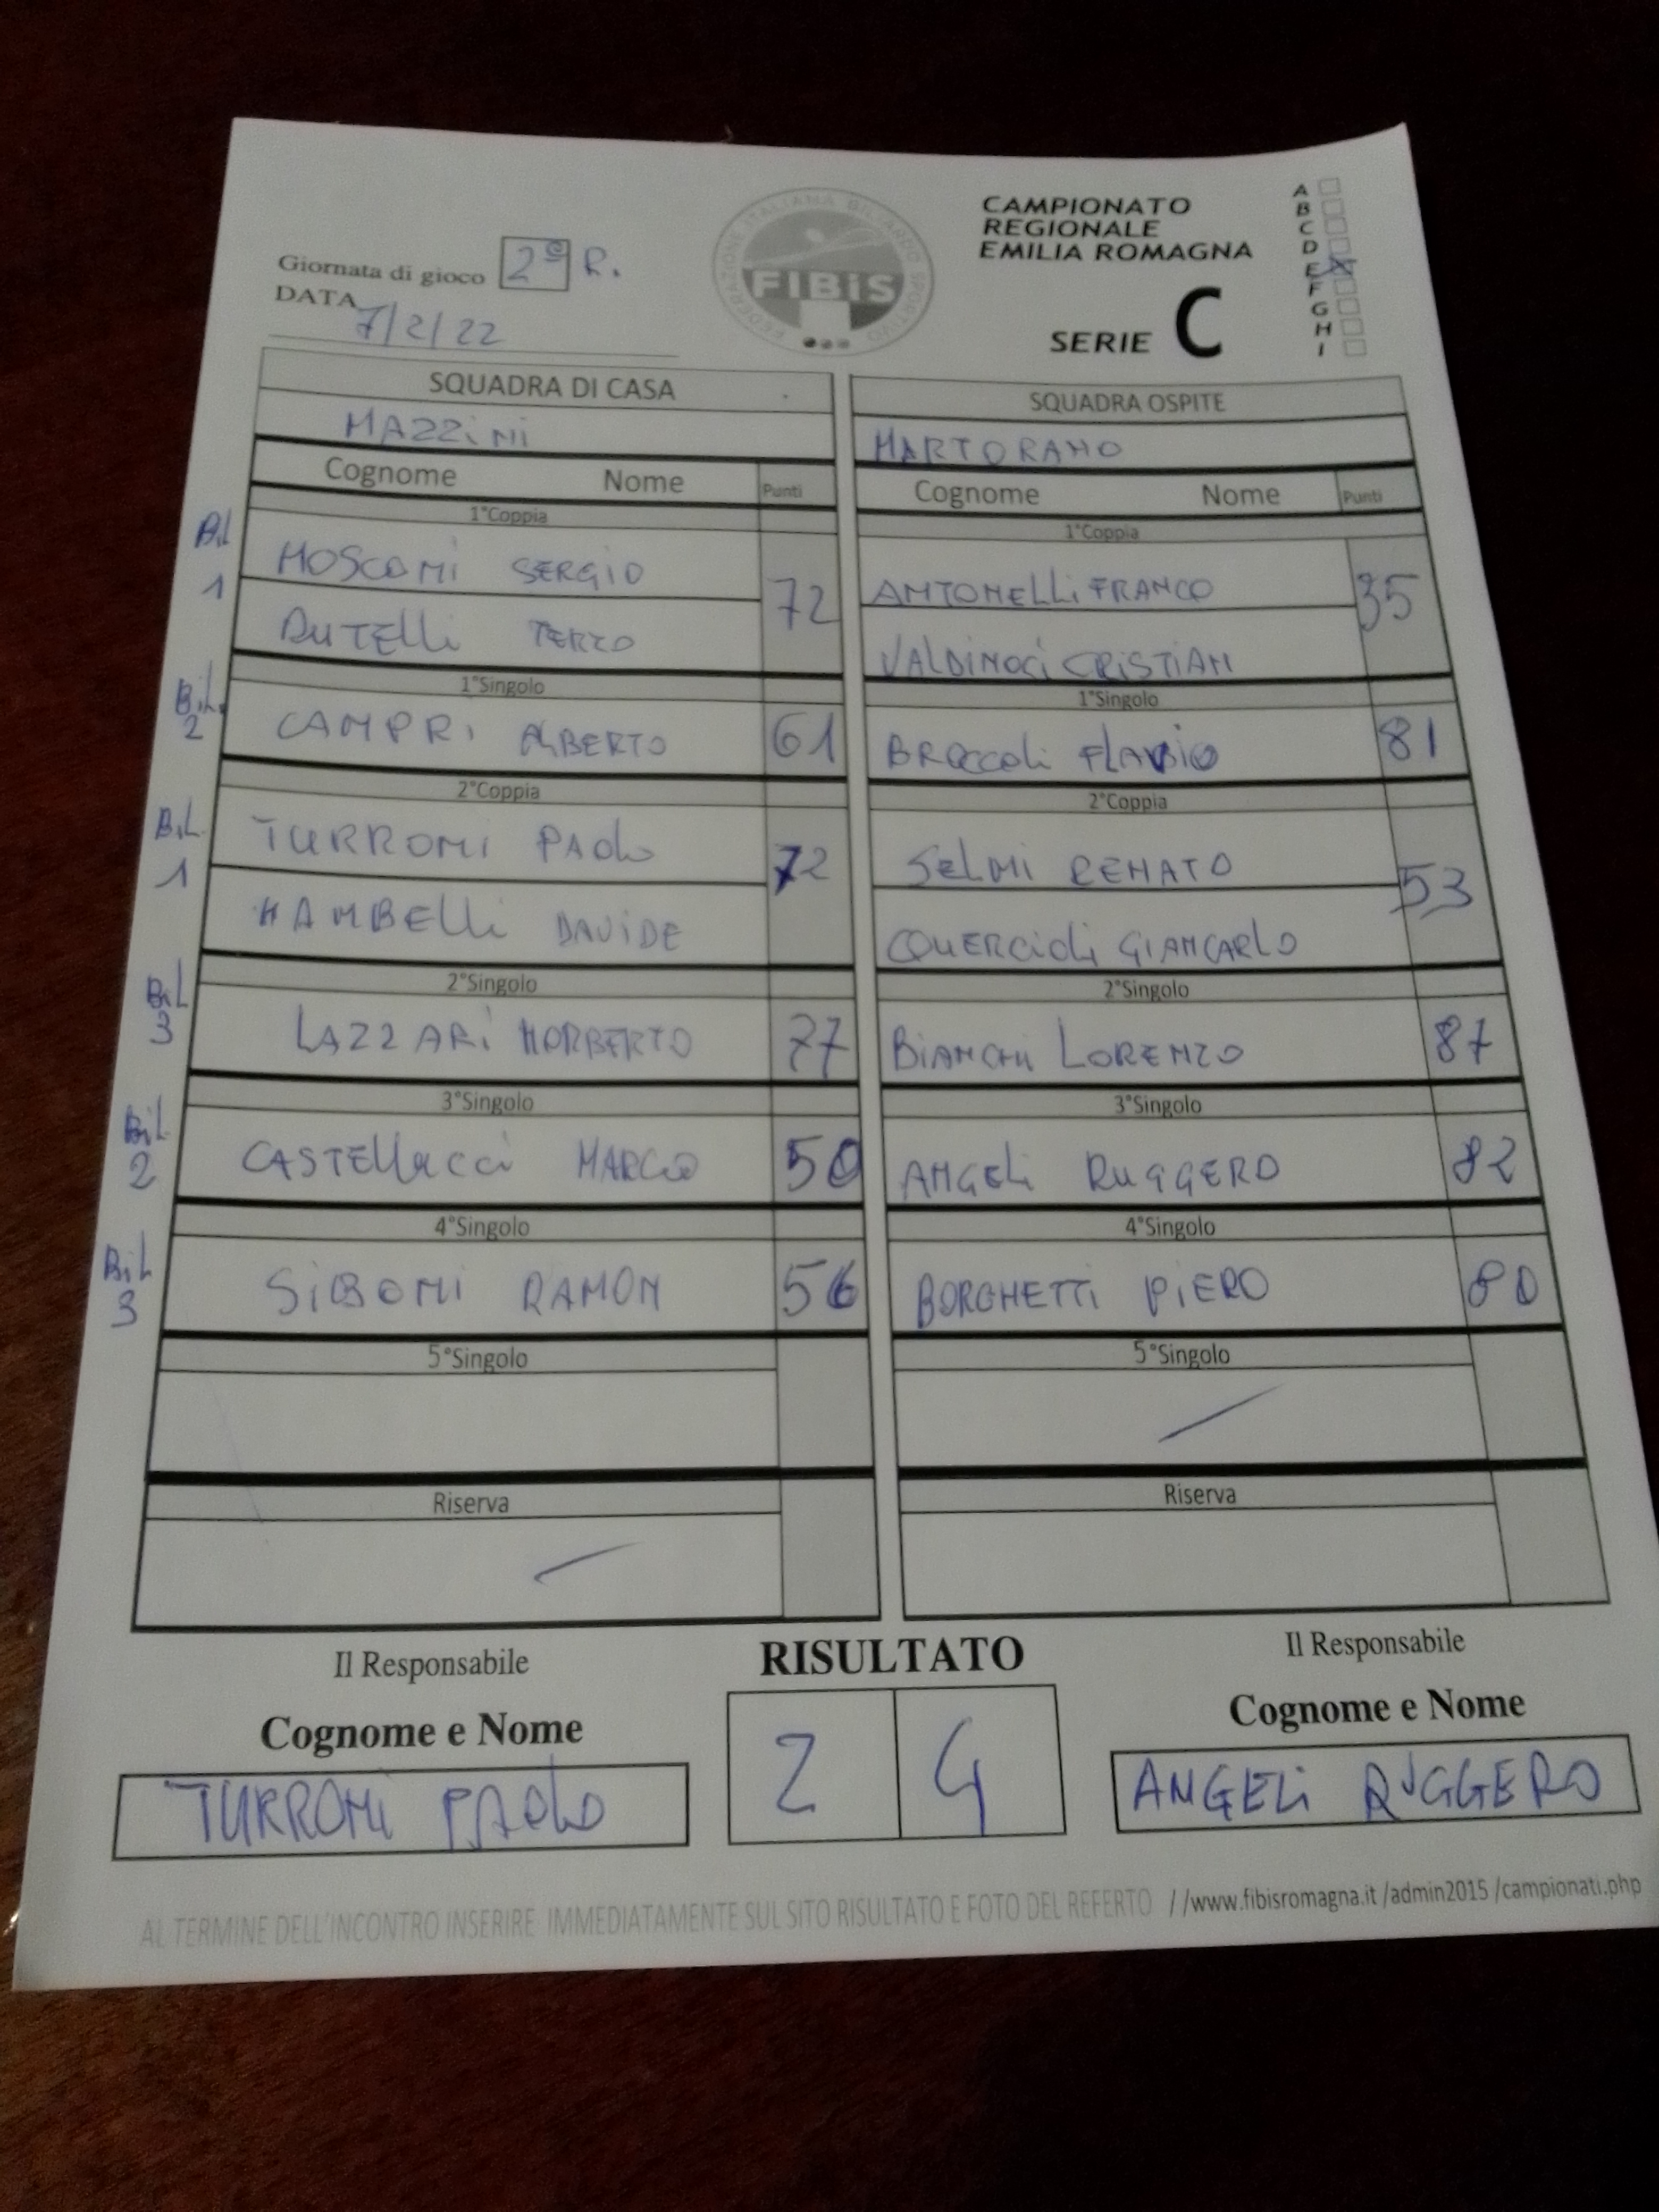 Giornata di gioco 2ª R.
DATA 7/2/22
FEDERAZIONE ITALIANA BILIARDO SPORTIVO
FIBiS
CAMPIONATO
REGIONALE
EMILIA ROMAGNA
SERIE C
A
B
C
D
E
F
G
H
I
SQUADRA DI CASA
SQUADRA OSPITE
MAZZiNi
MARTORANO
Cognome Nome Punti
Cognome Nome Punti
1°Coppia
1°Coppia
Bil 1
MOSCONi SERGiO
72
TERZO
ANTONELLi FRANCO
35
VALDINOCi CRiSTiAN
1°Singolo
1°Singolo
Bil. 2
CAMPRi ALBERTO 61
BROCCOLi FLAViO 81
2°Coppia
2°Coppia
BiL. 1
TURRONi PAOLO
72
MAMBELLi DAViDE
SELMi RENATO
53
QUERCiOLi GiANCARLO
2°Singolo
2°Singolo
BiL 3
LAZZARi NORBERTO 77
BiANCHi LORENZO 87
3°Singolo
3°Singolo
BiL 2
CASTELLUCCi MARCO 50
ANGELi RUGGERO 82
4°Singolo
4°Singolo
BiL 3
SiBONi RAMON 56
BORGHETTi PiERO 80
5°Singolo
5°Singolo
Riserva
Riserva
Il Responsabile
RISULTATO
Il Responsabile
Cognome e Nome
2 4
Cognome e Nome
TURRONi PAOLO
ANGELi RUGGERO
AL TERMINE DELL'INCONTRO INSERIRE IMMEDIATAMENTE SUL SITO RISULTATO E FOTO DEL REFERTO //www.fibisromagna.it /admin2015 /campionati.php